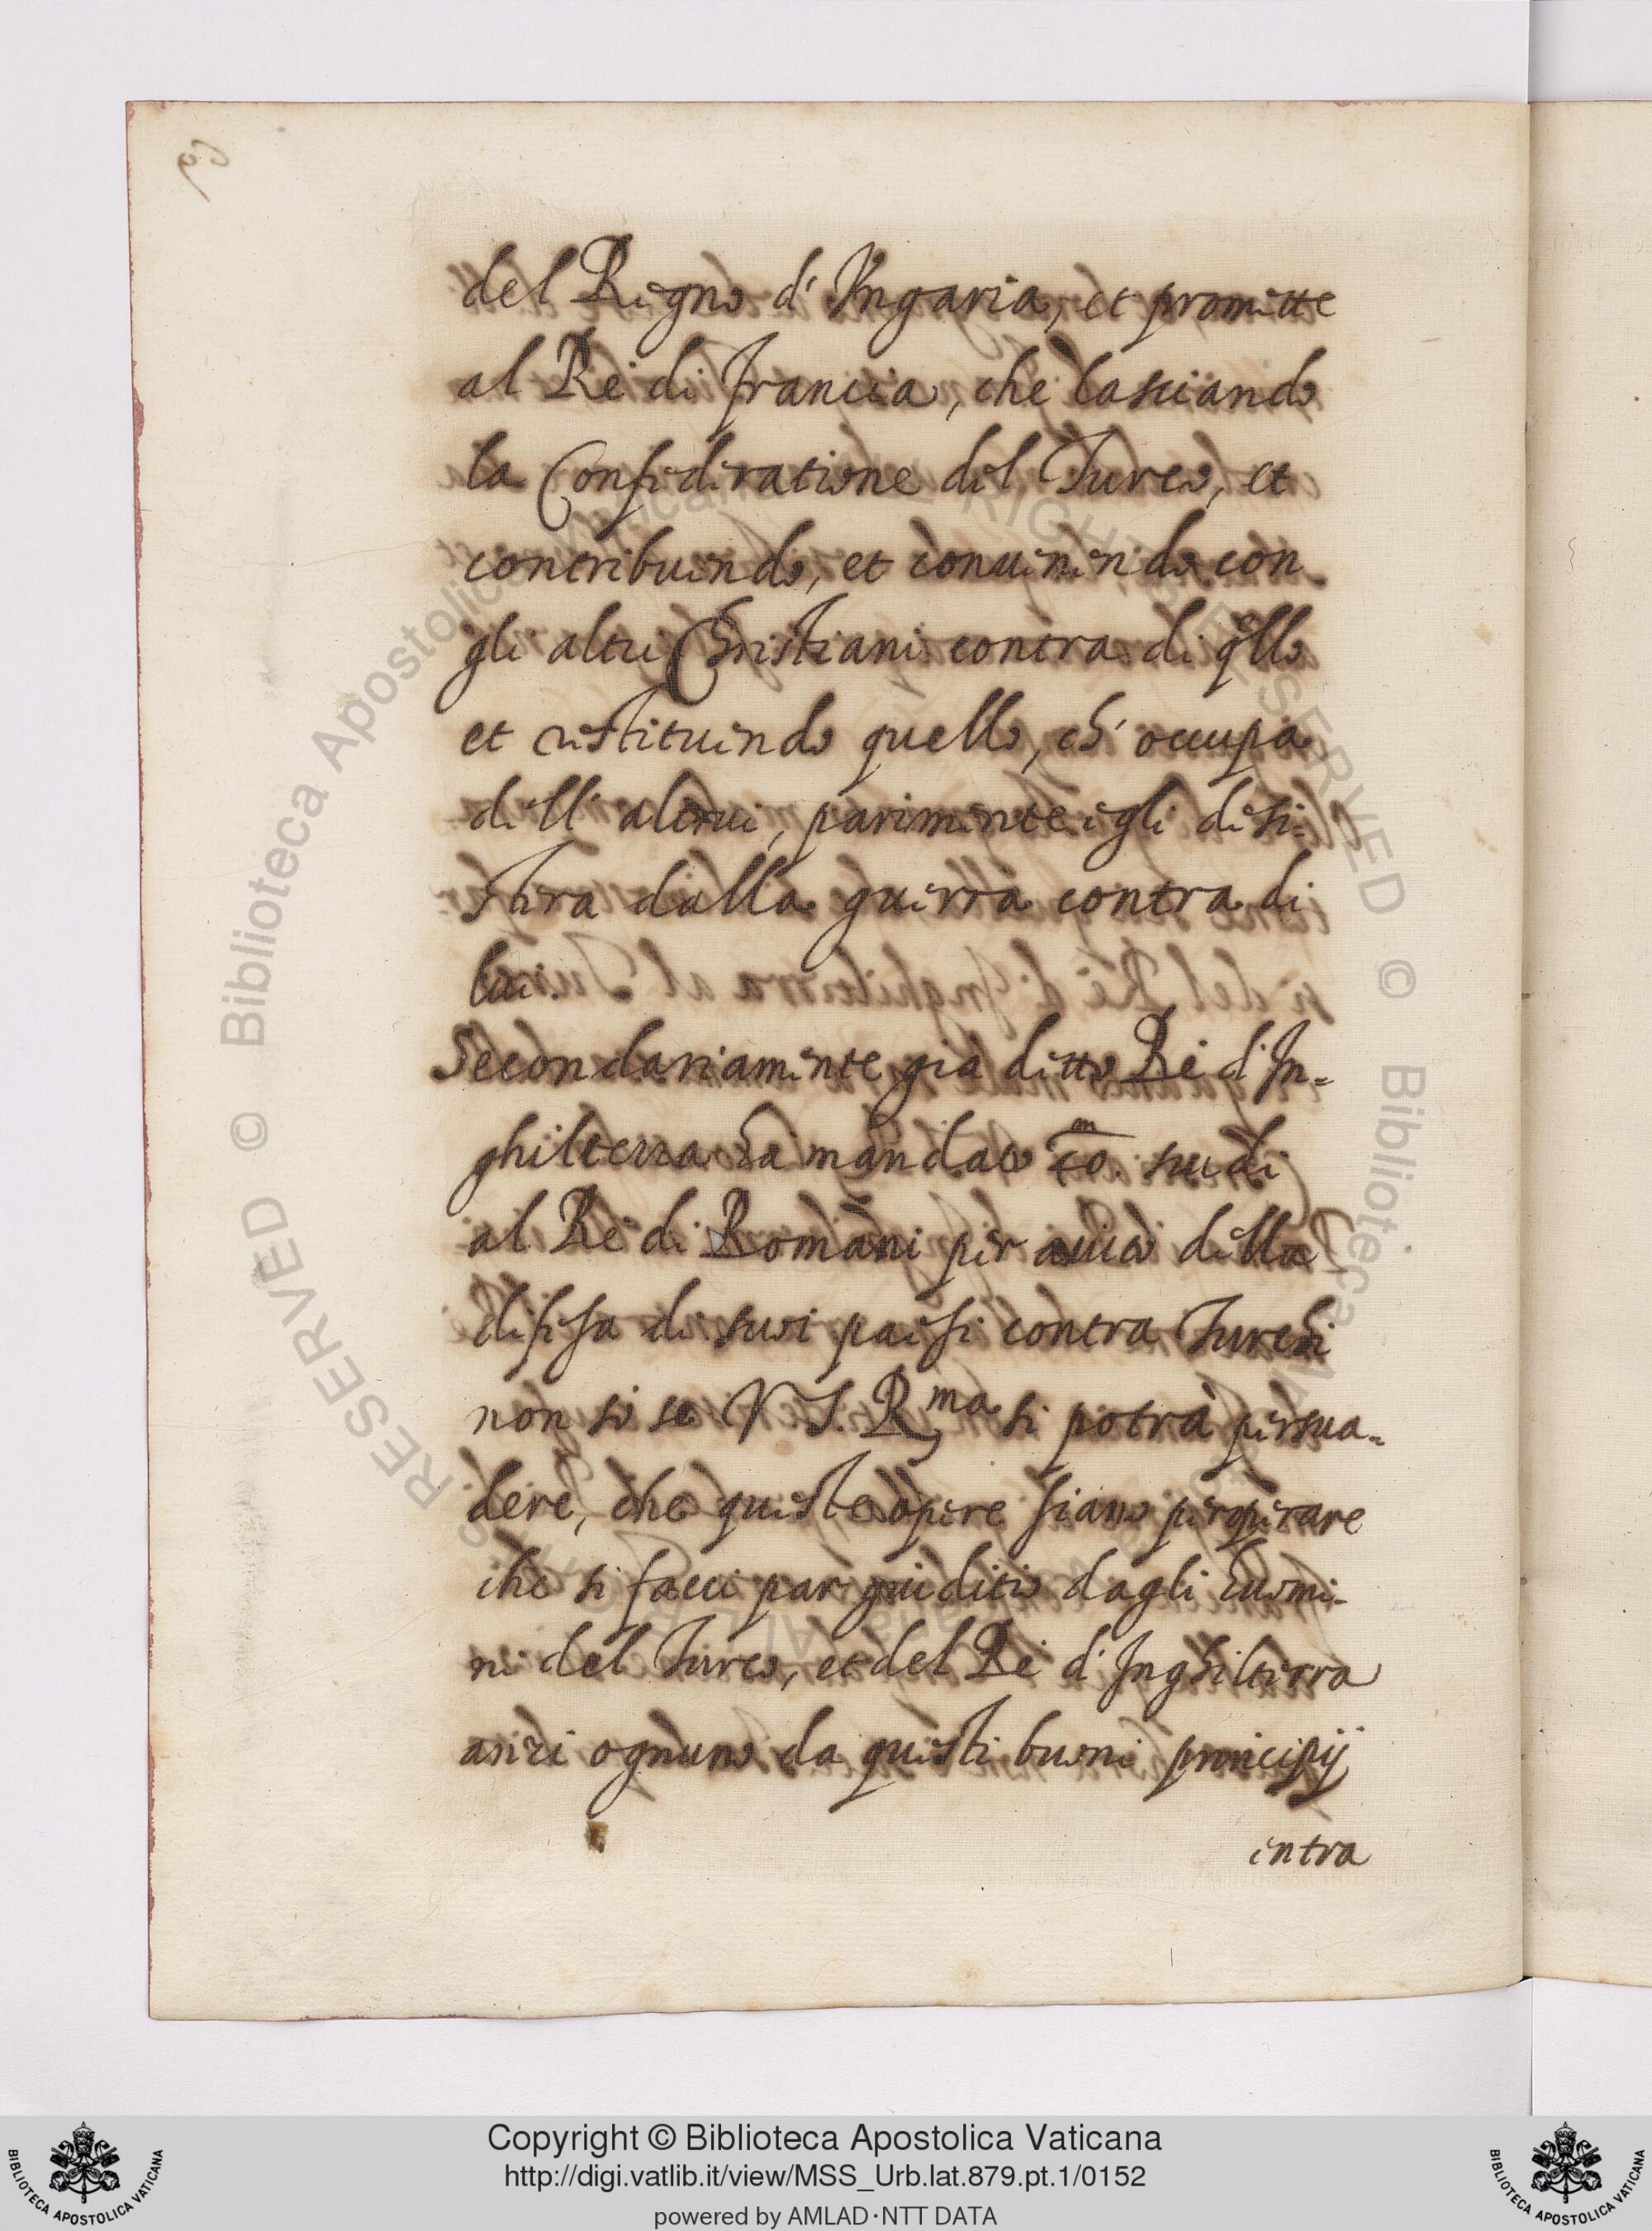 del Regno d' Vngaria, et promette
al Re di Francia, che lasciando
la Confederatione del Turco, et
contribuendo, et conuenendo con
gli altri Christiani contra di qllo
et restituendo quello, ch' occupa
dell' altrui, parimente egli desi-
stera dalla guerra contra di
lui.
Secondariamente gia detto Re d' In-
ghilterra ha mandato scudi
al Re di Romani per aiuto della
difesa di suoi paesi contra Turchi
non so se V S. Rma si potrà persua-
dere, che queste opere siano per operare
che si facci par giuditio dagli huomi-
ni del Turco, et del Re d' Inghilterra
anzi ognuno da questi buoni principij
intra
Copyright © Biblioteca Apostolica Vaticana
http://digi.vatlib.it/view/MSS_Urb.lat.879.pt.1/0152
powered by AMLAD·NTT DATA
BIBLIOTECA APOSTOLICA VATICANA
BIBLIOTECA APOSTOLICA VATICANA